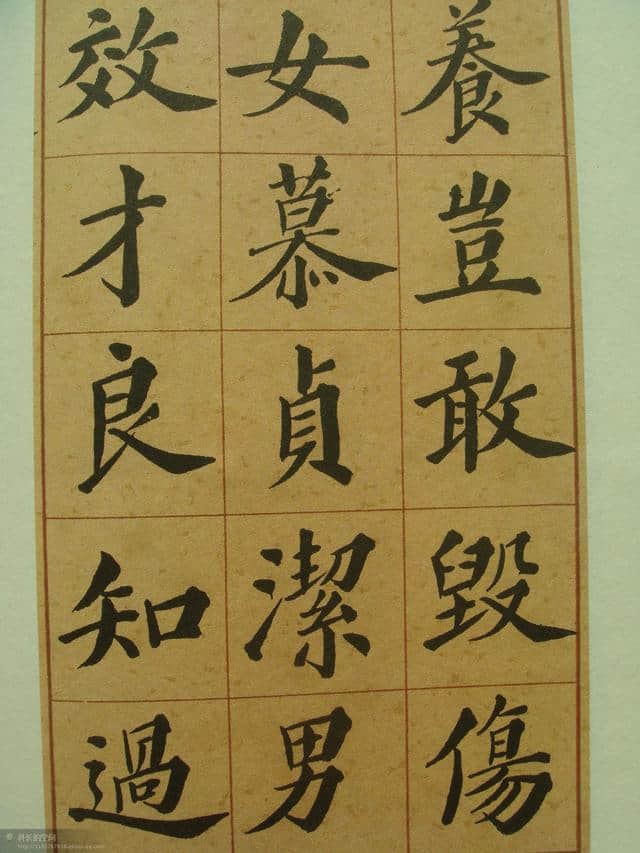 養豈敢毀傷
女慕貞潔男
效才良知過